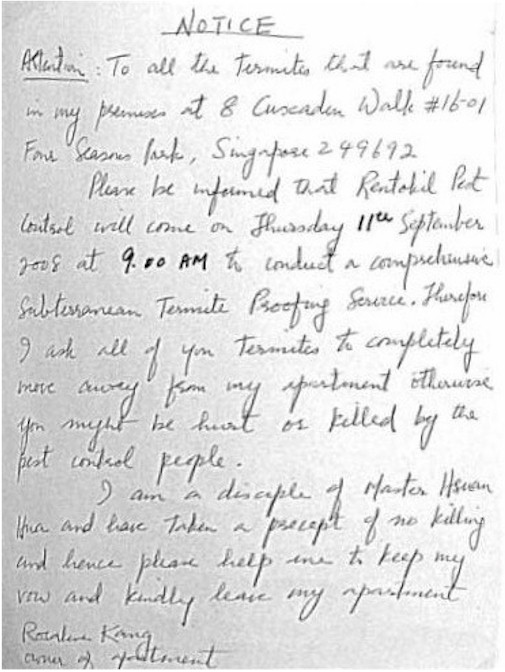 NOTICE
Attention : To all the Termites that are found
in my premises at 8 Cuscaden Walk #16-01
Four Seasons Park, Singapore 249692
Please be informed that Rentokil Pest
Control will come on Thursday 11th September
2008 at 9.00 AM to conduct a comprehensive
Subterranean Termite Proofing Service. Therefore
I ask all of you Termites to completely
move away from my apartment otherwise
you might be hurt or killed by the
pest control people.
I am a disciple of Master Hsuan
Hua and have taken a precept of no killing
and hence please help me to keep my
vow and kindly leave my apartment
Kang
owner of apartment